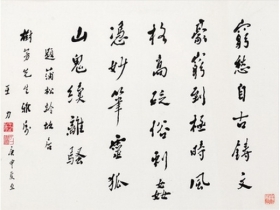 窮愁自古鑄文
豪窮到極時風
格高砭俗刺姦
憑妙筆靈狐
山鬼續離騷
題蒲松齡故居
先生雅屬
王力